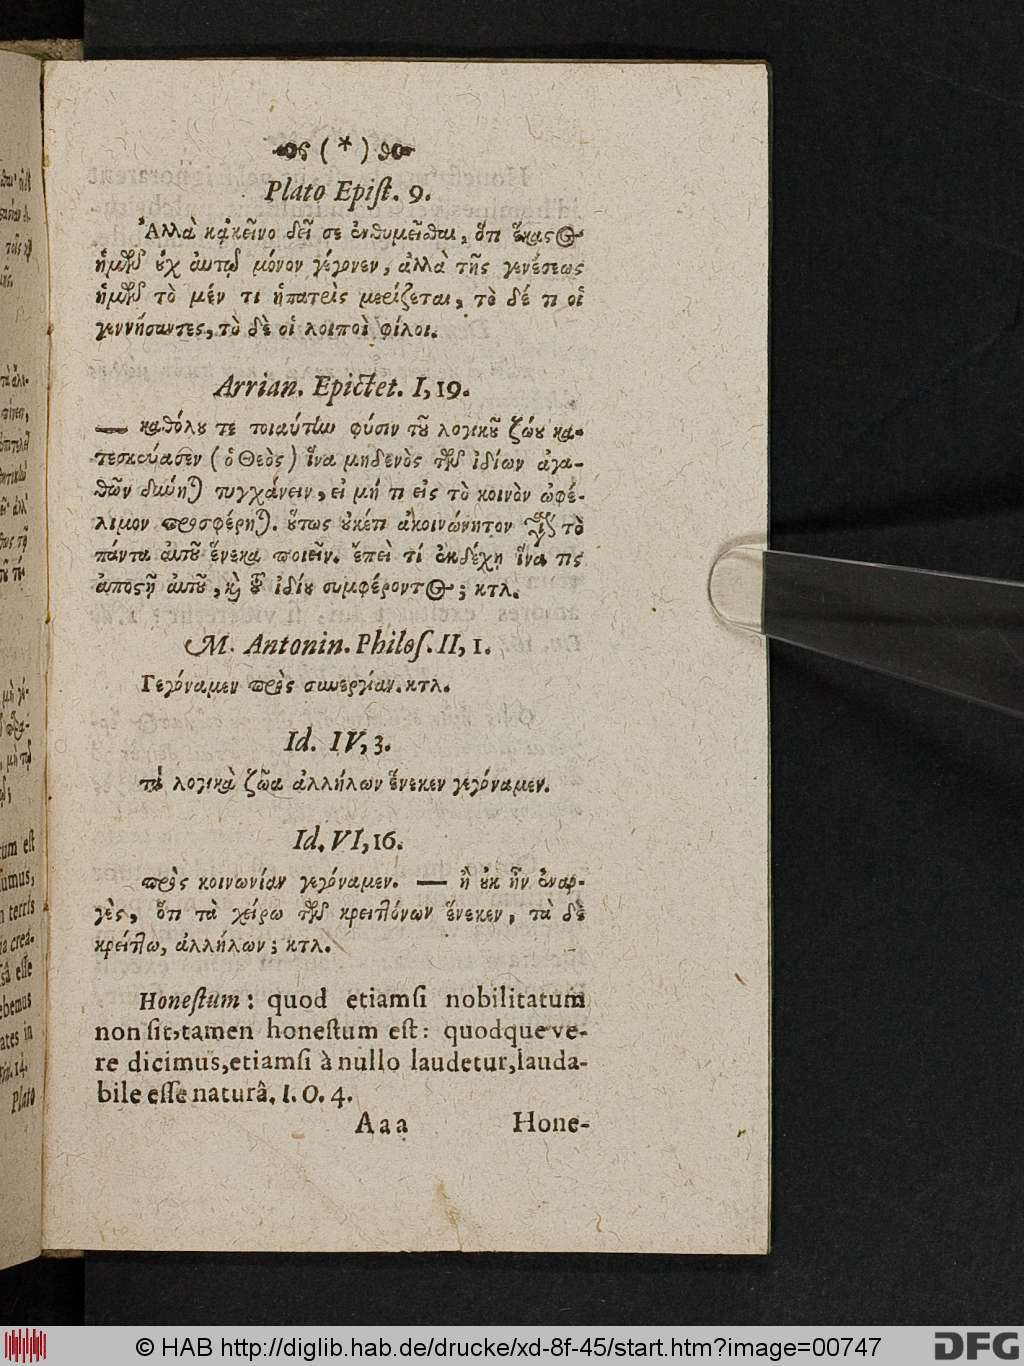 ( * )
Plato Epiſt. 9.
Ἀλλὰ κᾀκεῖνο δεῖ σε ἐνθυμεῖσθαι, ὅτι ἕκαστος
ἡμῶν οὐχ αὑτῷ μόνον γέγονεν, ἀλλὰ τῆς γενέσεως
ἡμῶν τὸ μέν τι ἡ πατρὶς μερίζεται, τὸ δέ τι οἱ
γεννήσαντες, τὸ δὲ οἱ λοιποὶ φίλοι.
Arrian. Epictet. I, 19.
— καθόλου τε τοιαύτην φύσιν τοῦ λογικοῦ ζώου κα-
τεσκεύασεν (ὁ Θεὸς) ἵνα μηδενὸς τῶν ἰδίων ἀγα-
θῶν δύνηται τυγχάνειν, εἰ μή τι εἰς τὸ κοινὸν ὠφέ-
λιμον προσφέρηται. οὕτως οὐκέτι ἀκοινώνητον τὸ
πάντα αὑτοῦ ἕνεκα ποιεῖν. ἔπεὶ τί ἐκδέχῃ ἵνα τις
ἀποστῇ αὑτοῦ, καὶ τοῦ ἰδίου συμφέροντος; κτλ.
M. Antonin. Philoſ. II, 1.
Γεγόναμεν πρὸς συνεργίαν. κτλ.
Id. IV, 3.
τὰ λογικὰ ζῶα ἀλλήλων ἕνεκεν γεγόναμεν.
Id. VI, 16.
πρὸς κοινωνίαν γεγόναμεν. — ἢ οὐκ ἦν ἐναρ-
γὲς, ὅτι τὰ χείρω τῶν κρειττόνων ἕνεκεν, τὰ δὲ
κρείττω, ἀλλήλων; κτλ.
Honeſtum: quod etiamſi nobilitatum
non ſit, tamen honeſtum eſt: quodque ve-
re dicimus, etiamſi à nullo laudetur, lauda-
bile eſſe naturâ. I. O. 4.
Aaa Hone-
um eſt
ſumus,
terris
crea-
ſâ eſſe
ebemus
ates in
14.
Plato
© HAB http://diglib.hab.de/drucke/xd-8f-45/start.htm?image=00747
DFG